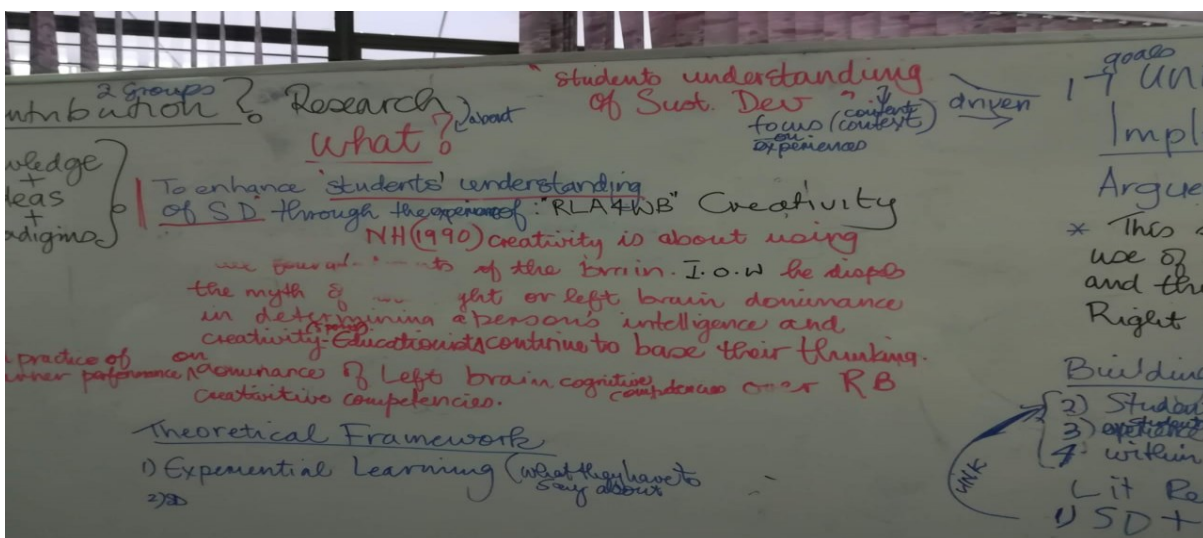 2 groups
? Research
about
What?
"students understanding
of Sust. Dev
focus (content
context)
on
experiences
driven
1
goals
Impl
Argue
+
+
To enhance 'students' understanding
of SD' through the experience of: "RLA4WB" Creativity
NH (1990) creativity is about using
of the brain. I.O.W he dispels
the myth of ght or left brain dominance
in determining a person's intelligence and
creativity - Educationists continue to base their thinking.
practice of on
performance dominance of Left brain cognitive competencies over RB
creativitive competencies.
Theoretical Framework
1) Experiential Learning (what they have to
say about
2) SD
* This
use of
and the
Right
Building
2)
3)
4 within
LINK
Lit Re
1) SD +